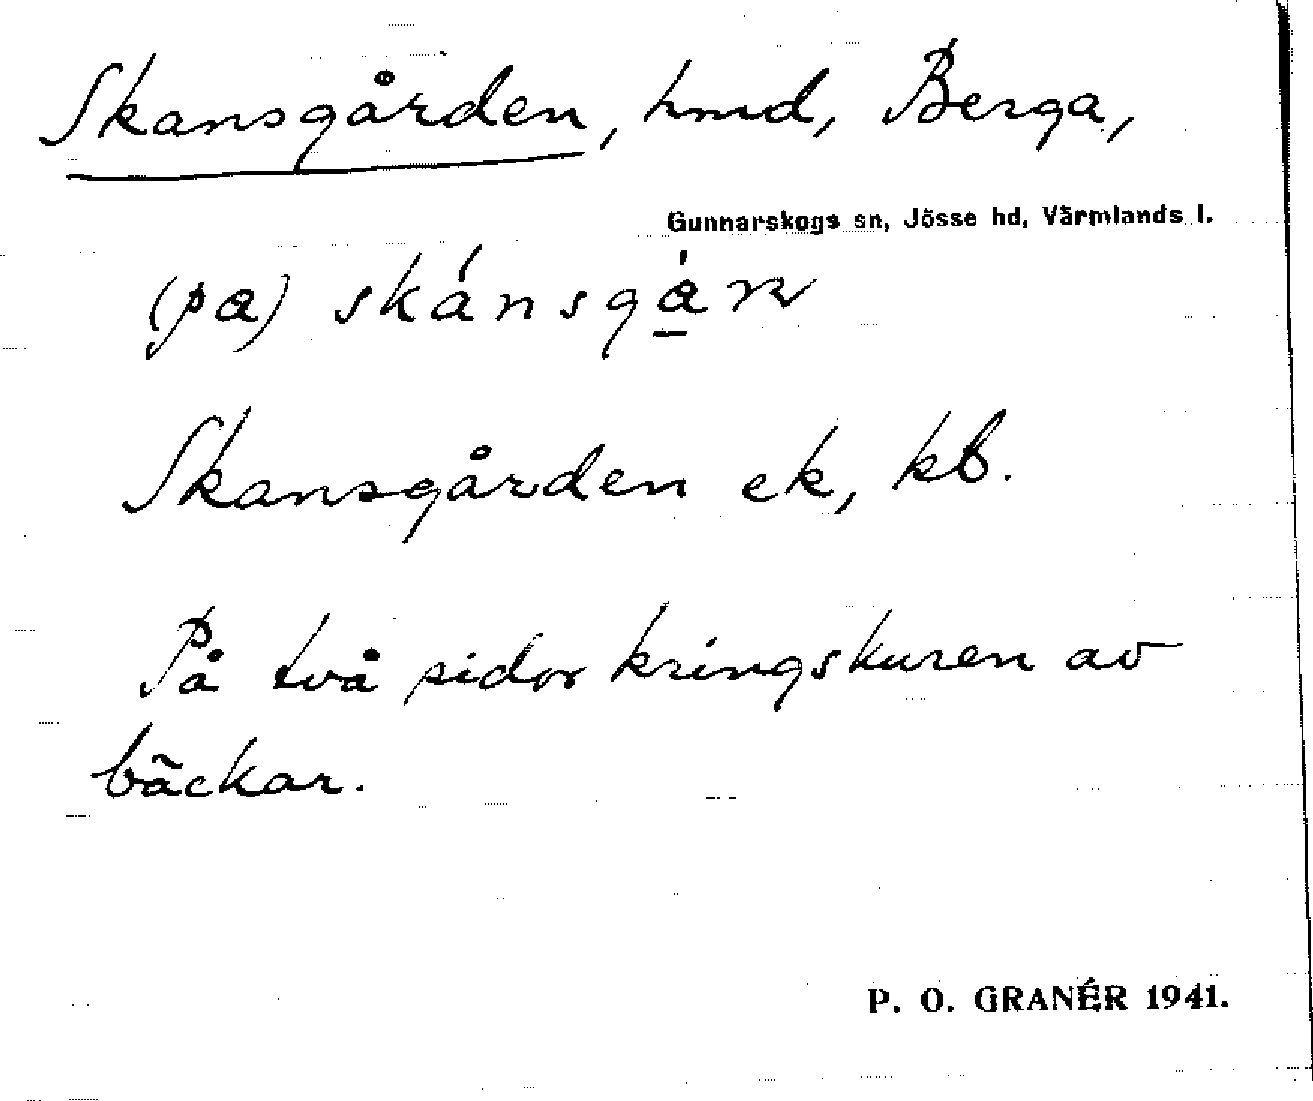 Skansgården, hmd, Berga,
Gunnarskogs sn, Jösse hd, Värmlands l.
(pa) skánsgá̱rn
Skansgården ek, kb.
På två sidor kringskuren av
bäckar.
P. O. GRANÉR 1941.